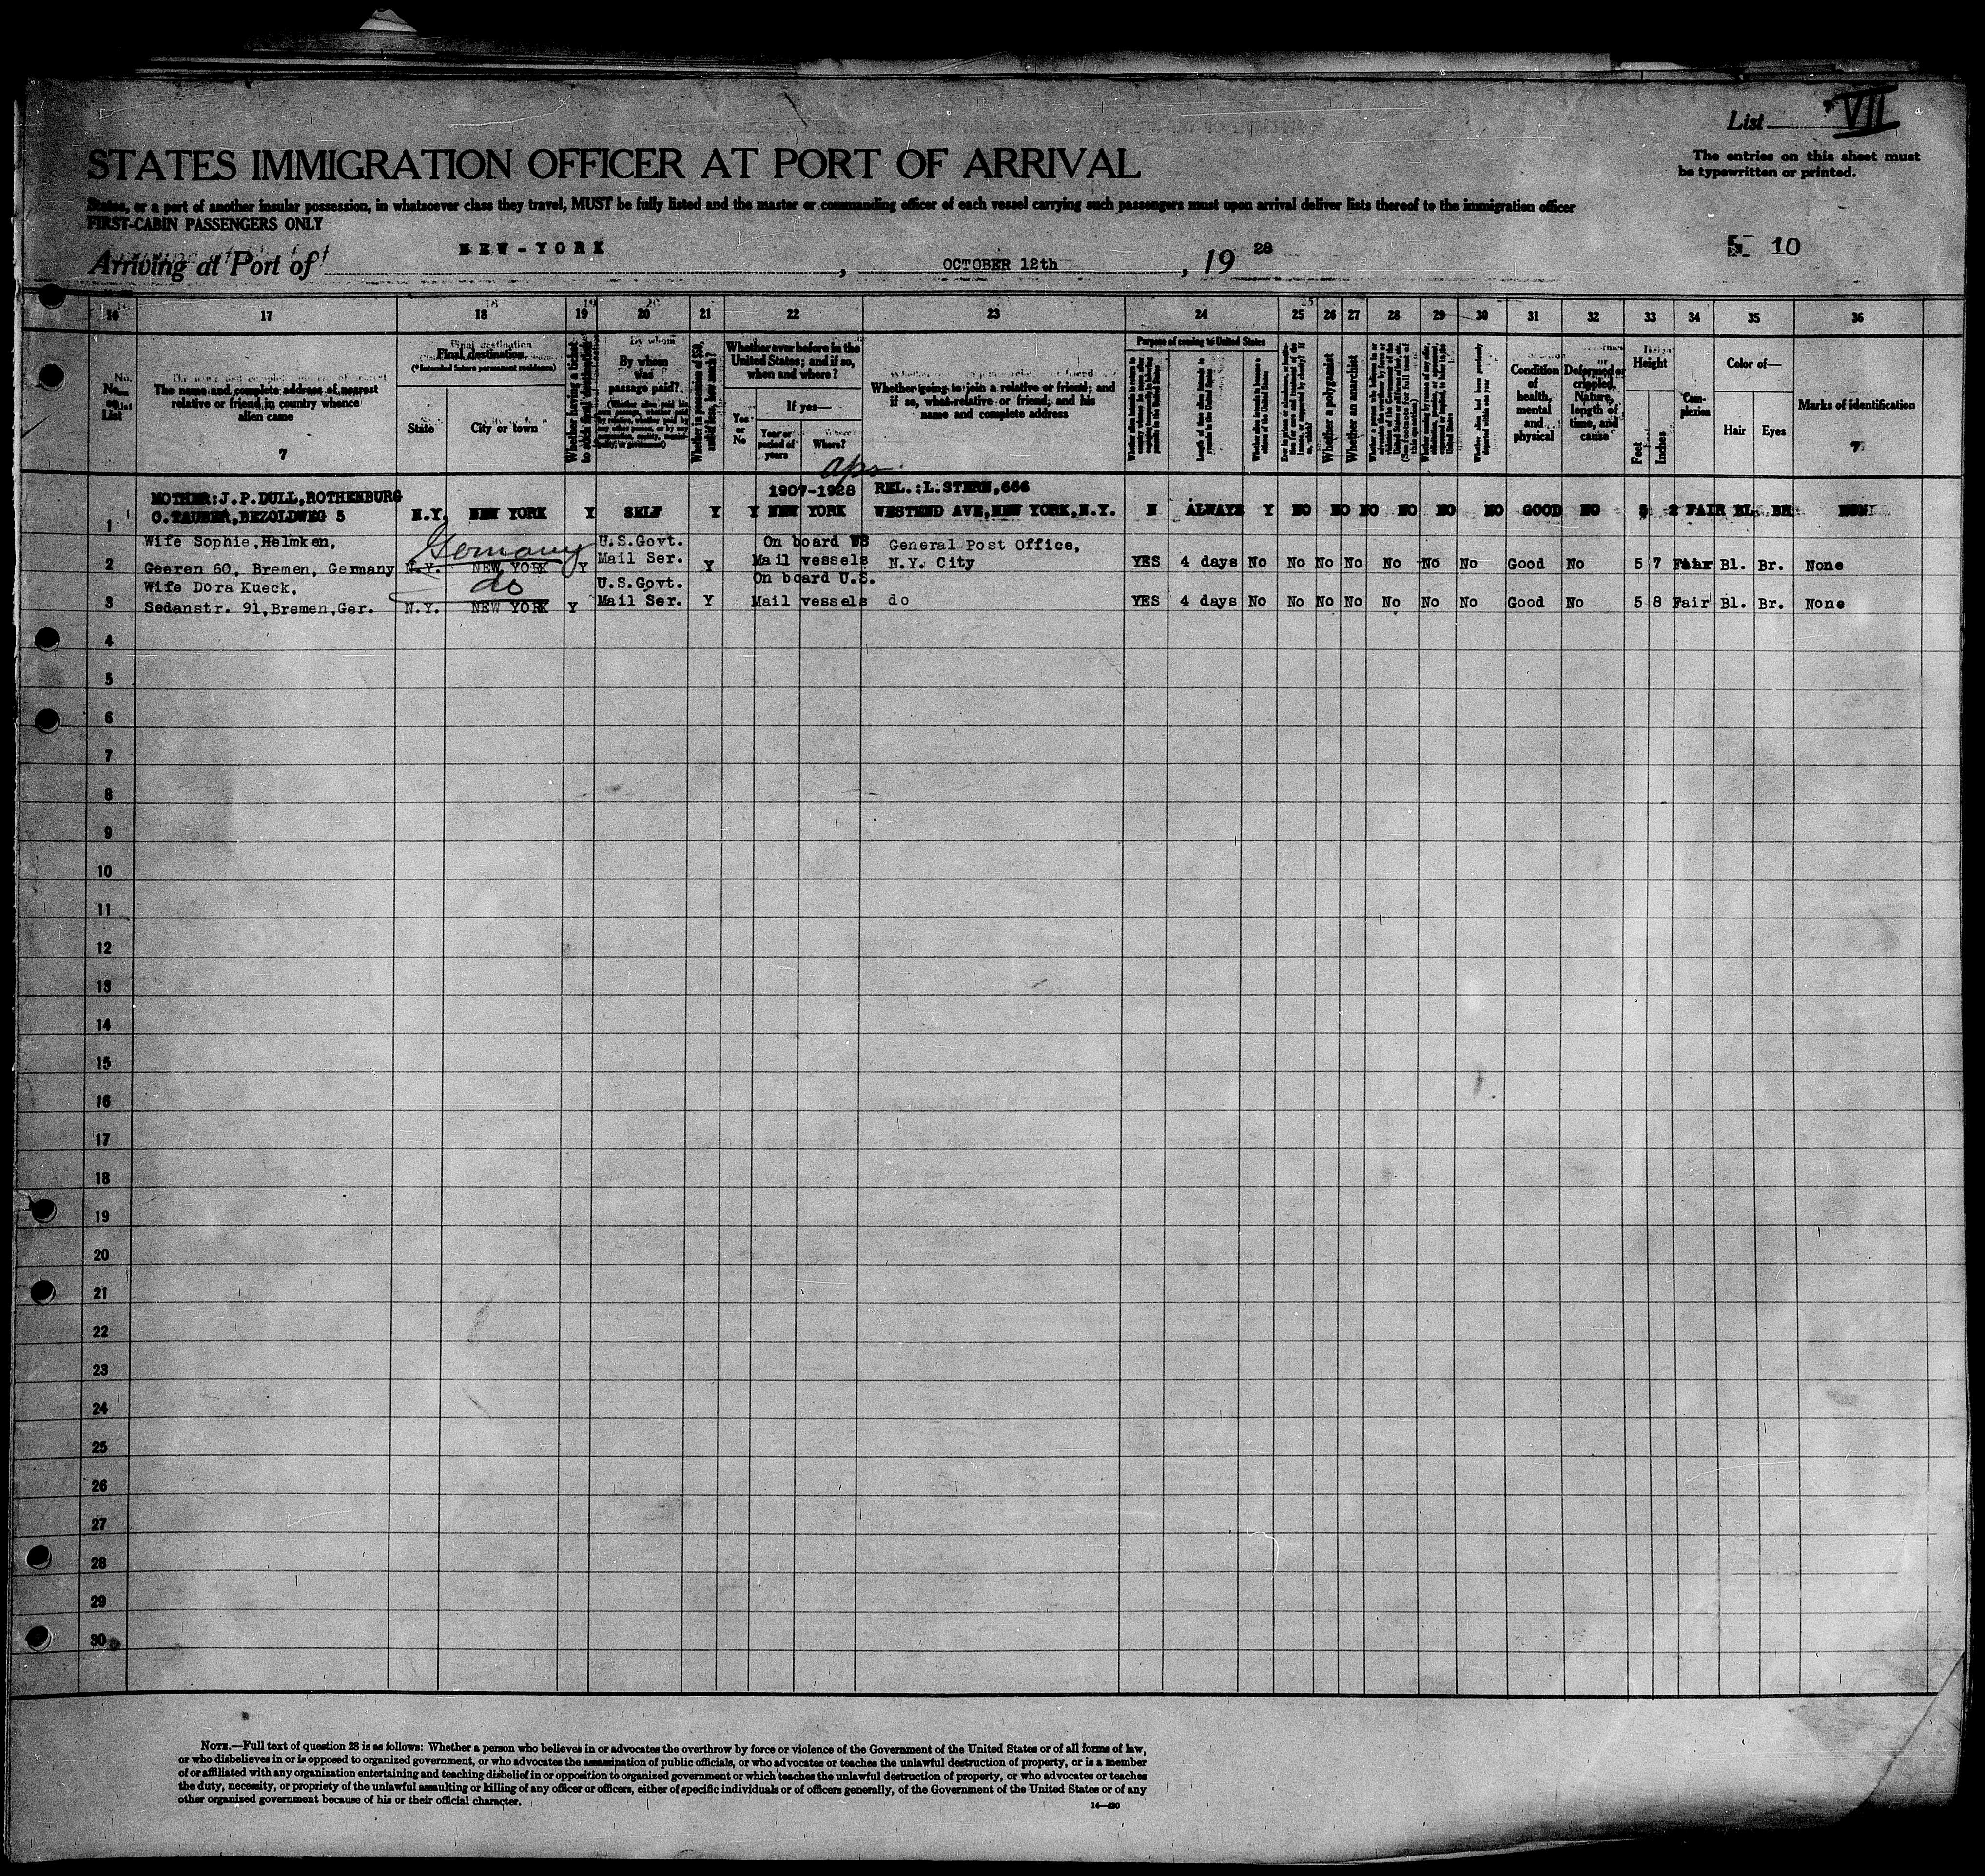 List VII
The entries on this sheet must
be typewritten or printed.
STATES IMMIGRATION OFFICER AT PORT OF ARRIVAL
States, or a part of another insular possession, in whatsoever class they travel, MUST be fully listed and the master or commanding officer of each vessel carrying such passengers must upon arrival deliver lists thereof to the immigration officer
FIRST-CABIN PASSENGERS ONLY
Arriving at Port of NEW-YORK, OCTOBER 12th, 19 28
10
16 17 18 19 20 21 22 23 24 25 26 27 28 29 30 31 32 33 34 35 36
No. on List
The name and complete address of nearest relative or friend in country whence alien came
7
Final destination
(*Intended future permanent residence)
State
City or town
Whether having a ticket to such final destination
By whom was passage paid?
Whether in possession of $50, and if less, how much?
Whether ever before in the United States; and if so, when and where?
Yes or No
If yes—
Year or period of years
Where?
Whether going to join a relative or friend; and if so, what relative or friend, and his name and complete address
Purpose of coming to United States
Length of time alien intends to remain in the United States
Whether alien intends to become a citizen of the United States
Whether a polygamist
Whether an anarchist
Whether alien had been previously deported within one year
Condition of health, mental and physical
Deformed or crippled. Nature, length of time, and cause
Height
Feet
Inches
Complexion
Color of—
Hair
Eyes
Marks of identification
7
MOTHER: J.P. DULL, ROTHENBURG 1907-1928 REL.: L. STERN, 666
1 O. TAUBER, BEZOLDWEG 5 N.Y. NEW YORK Y SELF Y Y NEW YORK WESTEND AVE, NEW YORK, N.Y. N ALWAYS Y NO NO NO NO NO NO GOOD NO 5 2 FAIR BL. BR.
Wife Sophie, Helmken, Germany U.S.Govt. On board US General Post Office,
2 Geeren 60, Bremen, Germany N.Y. NEW YORK Y Mail Ser. Y Mail vessels N.Y. City YES 4 days No No No No No No No Good No 5 7 Fair Bl. Br. None
Wife Dora Kueck, do U.S.Govt. On board U.S.
3 Sedanstr. 91, Bremen, Ger. N.Y. NEW YORK Y Mail Ser. Y Mail vessels do YES 4 days No No No No No No No Good No 5 8 Fair Bl. Br. None
4
5
6
7
8
9
10
11
12
13
14
15
16
17
18
19
20
21
22
23
24
25
26
27
28
29
30
NOTE.—Full text of question 28 is as follows: Whether a person who believes in or advocates the overthrow by force or violence of the Government of the United States or of all forms of law,
or who disbelieves in or is opposed to organized government, or who advocates the assassination of public officials, or who advocates or teaches the unlawful destruction of property, or is a member
of or affiliated with any organization entertaining and teaching disbelief in or opposition to organized government or which teaches the unlawful destruction of property, or who advocates or teaches
the duty, necessity, or propriety of the unlawful assaulting or killing of any officer or officers, either of specific individuals or of officers generally, of the Government of the United States or of any
other organized government because of his or their official character.